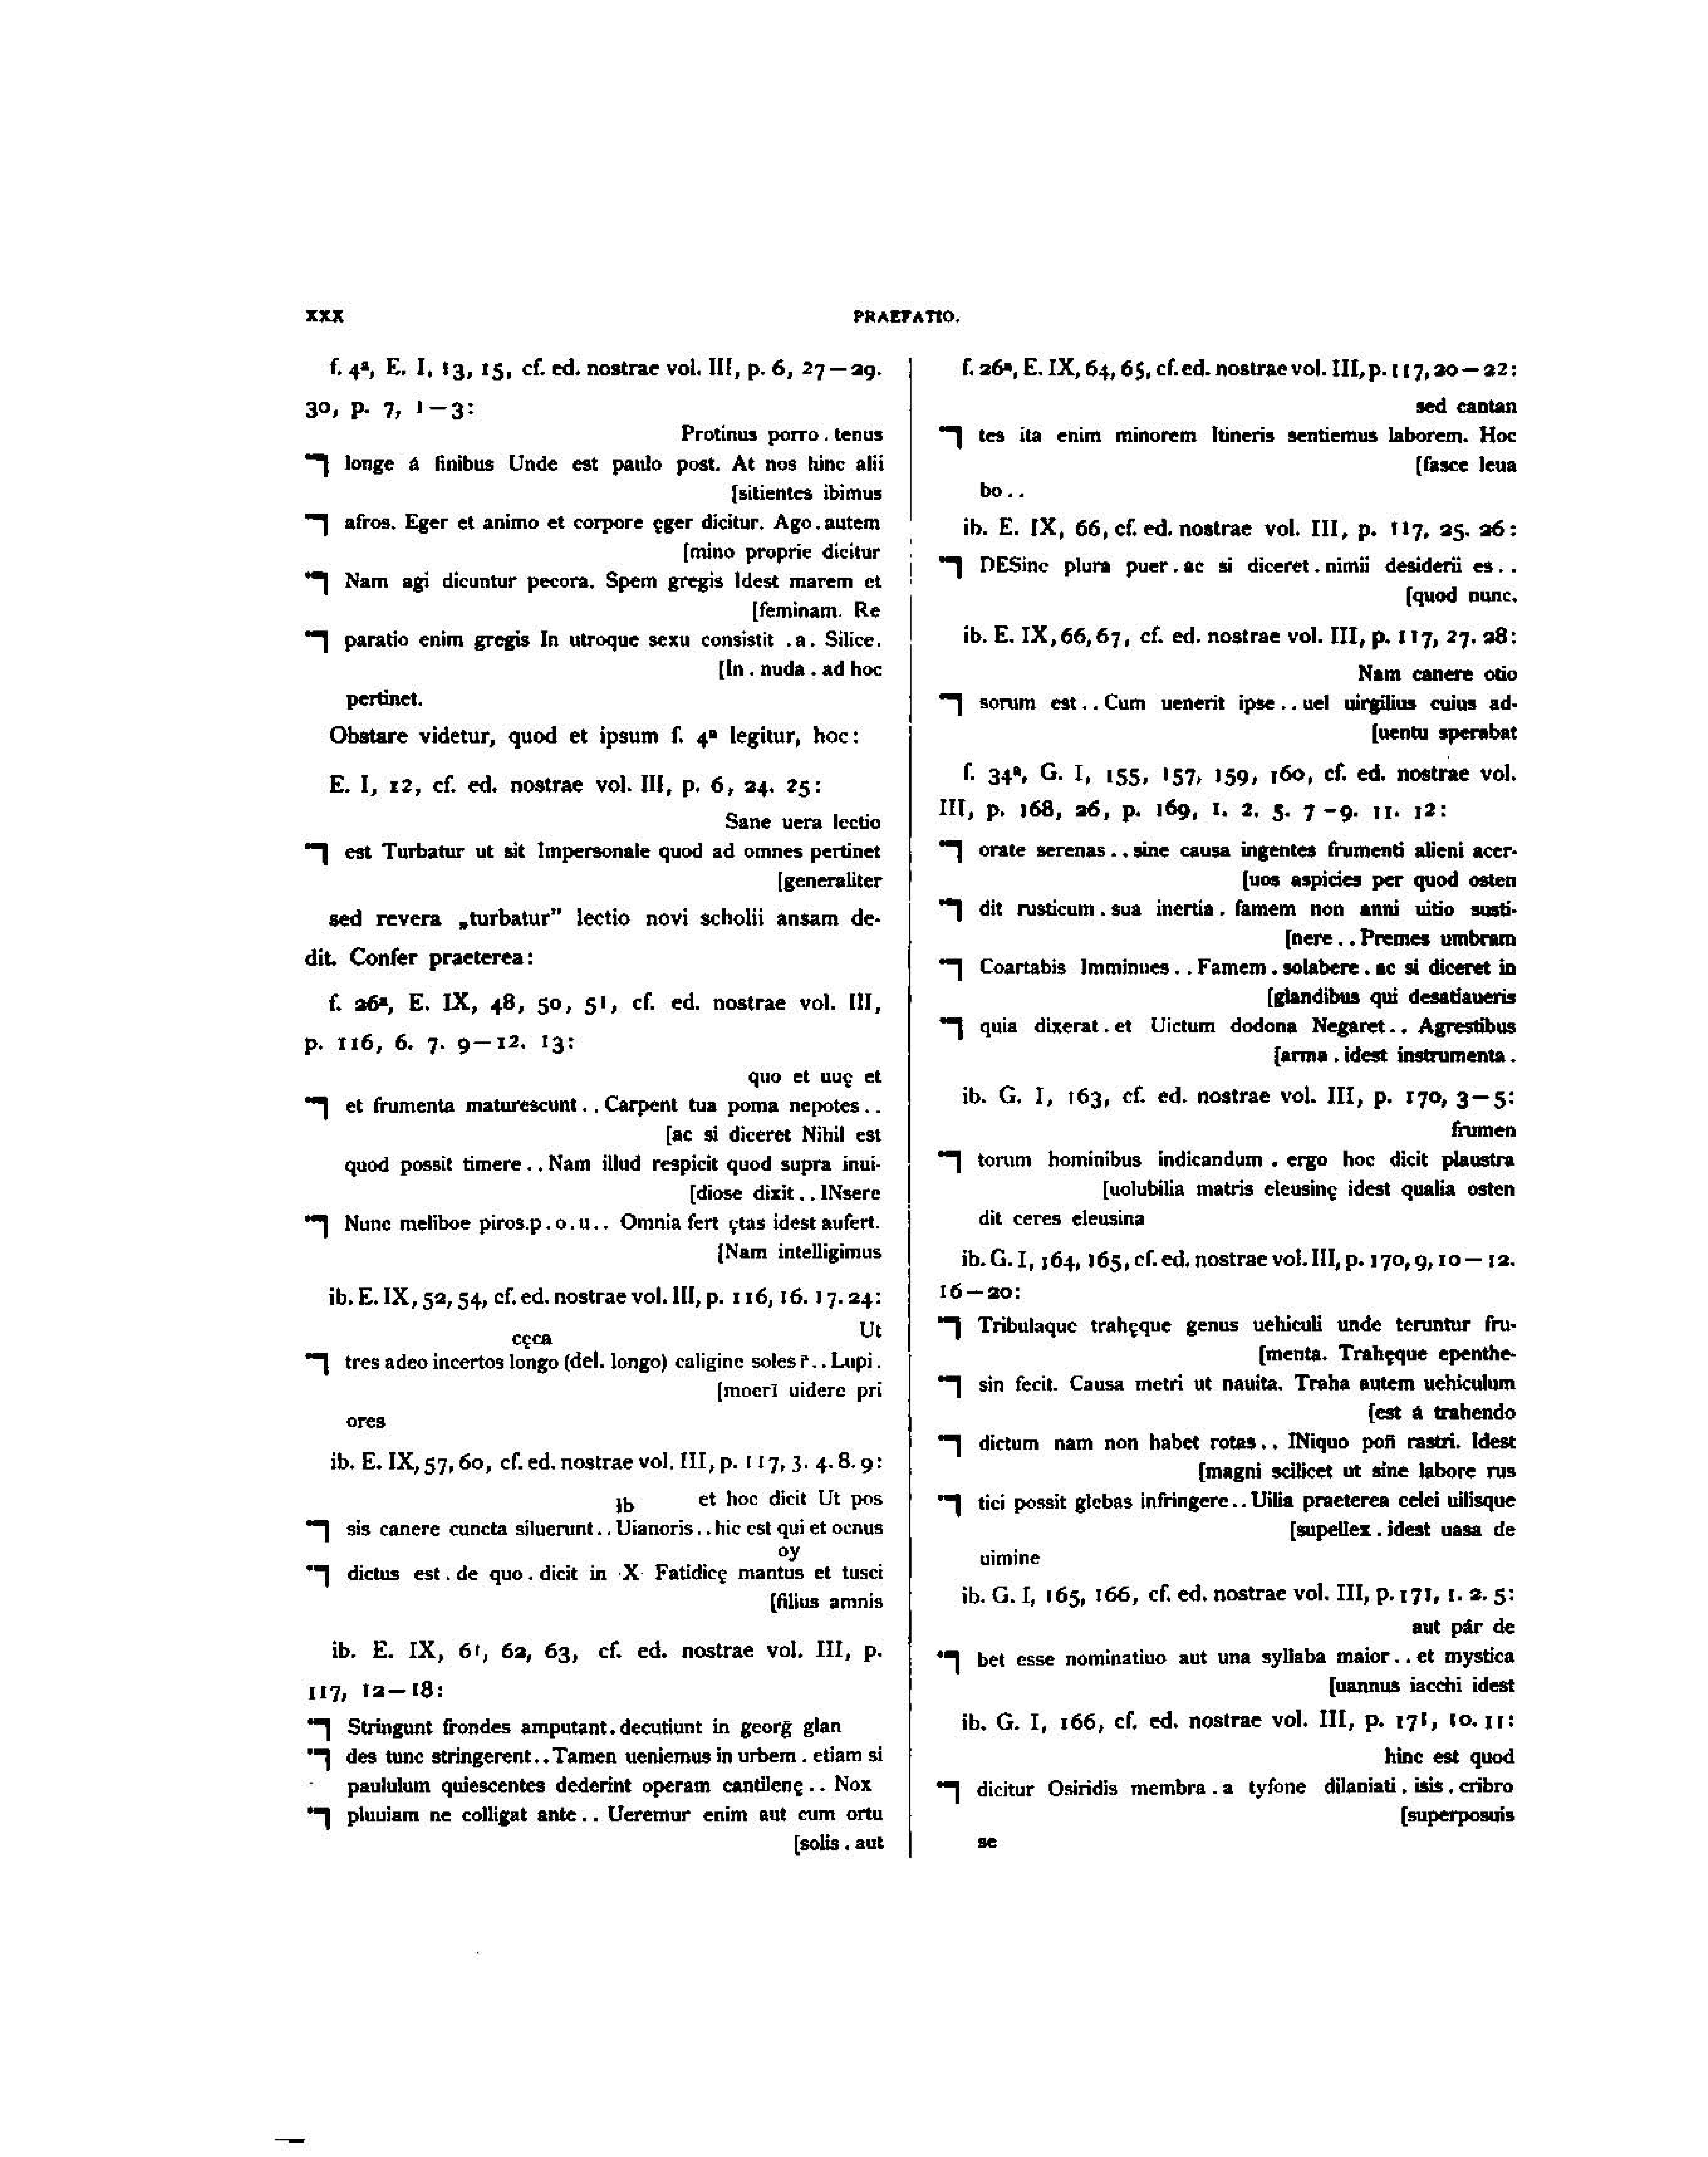 XXX
PRAEFATIO.
f. 4ª, E. I, 13, 15, cf. ed. nostrae vol. III, p. 6, 27—29.
30, p. 7, 1—3:
Protinus porro . tenus
longe á finibus Unde est paulo post. At nos hinc alii
[sitientes ibimus
afros. Eger et animo et corpore ęger dicitur. Ago. autem
[mino proprie dicitur
Nam agi dicuntur pecora. Spem gregis Idest marem et
[feminam. Re
paratio enim gregis In utroque sexu consistit .a. Silice.
[In . nuda . ad hoc
pertinet.
Obstare videtur, quod et ipsum f. 4ª legitur, hoc:
E. I, 12, cf. ed. nostrae vol. III, p. 6, 24. 25:
Sane uera lectio
est Turbatur ut sit Impersonale quod ad omnes pertinet
[generaliter
sed revera „turbatur” lectio novi scholii ansam de-
dit. Confer praeterea:
f. 26ª, E. IX, 48, 50, 51, cf. ed. nostrae vol. III,
p. 116, 6. 7. 9—12. 13:
quo et uuę et
et frumenta maturescunt . . Carpent tua poma nepotes . .
[ac si diceret Nihil est
quod possit timere . . Nam illud respicit quod supra inui-
[diose dixit . . INsere
Nunc meliboe piros.p.o.u.. Omnia fert ętas idest aufert.
[Nam intelligimus
ib. E. IX, 52, 54, cf. ed. nostrae vol. III, p. 116, 16. 17. 24:
cęca Ut
tres adeo incertos longo (del. longo) caligine soles r̄. . Lupi.
[moerī uidere pri
ores
ib. E. IX, 57, 60, cf. ed. nostrae vol. III, p. 117, 3. 4. 8. 9:
ib et hoc dicit Ut pos
sis canere cuncta siluerunt . . Uianoris . . hic est qui et ocnus
oy
dictus est . de quo . dicit in ·X· Fatidicę mantus et tusci
[filius amnis
ib. E. IX, 61, 62, 63, cf. ed. nostrae vol. III, p.
117, 12—18:
Stringunt frondes amputant. decutiunt in georḡ glan
des tunc stringerent. . Tamen ueniemus in urbem . etiam si
paululum quiescentes dederint operam cantilenę . . Nox
pluuiam ne colligat ante . . Ueremur enim aut cum ortu
[solis . aut
f. 26ª, E. IX, 64, 65, cf. ed. nostrae vol. III, p. 117, 20—22:
sed cantan
tes ita enim minorem Itineris sentiemus laborem. Hoc
[fasce leua
bo . .
ib. E. IX, 66, cf. ed. nostrae vol. III, p. 117, 25. 26:
DESinc plura puer . ac si diceret . nimii desiderii es . .
[quod nunc.
ib. E. IX, 66, 67, cf. ed. nostrae vol. III, p. 117, 27. 28:
Nam canere otio
sorum est . . Cum uenerit ipse . . uel uirgilius cuius ad-
[uentu sperabat
f. 34ª, G. I, 155, 157, 159, 160, cf. ed. nostrae vol.
III, p. 168, 26, p. 169, 1. 2. 5. 7—9. 11. 12:
orate serenas . . sine causa ingentes frumenti alieni acer-
[uos aspicies per quod osten
dit rusticum . sua inertia . famem non anni uitio susti-
[nere . . Premes umbram
Coartabis Imminues . . Famem . solabere . ac si diceret in
[glandibus qui desatiaueris
quia dixerat . et Uictum dodona Negaret . . Agrestibus
[arma . idest instrumenta .
ib. G. I, 163, cf. ed. nostrae vol. III, p. 170, 3—5:
frumen
torum hominibus indicandum . ergo hoc dicit plaustra
[uolubilia matris eleusinę idest qualia osten
dit ceres eleusina
ib. G. I, 164, 165, cf. ed. nostrae vol. III, p. 170, 9, 10—12.
16—20:
Tribulaque trahęque genus uehiculi unde teruntur fru-
[menta. Trahęque epenthe-
sin fecit. Causa metri ut nauita. Traha autem uehiculum
[est á trahendo
dictum nam non habet rotas . . INiquo poñ rastri. Idest
[magni scilicet ut sine labore rus
tici possit glebas infringere . . Uilia praeterea celei uilisque
[supellex . idest uasa de
uimine
ib. G. I, 165, 166, cf. ed. nostrae vol. III, p. 171, 1. 2. 5:
aut pár de
bet esse nominatiuo aut una syllaba maior . . et mystica
[uannus iacchi idest
ib. G. I, 166, cf. ed. nostrae vol. III, p. 171, 10. 11:
hinc est quod
dicitur Osiridis membra . a tyfone dilaniati . isis . cribro
[superposuis
se